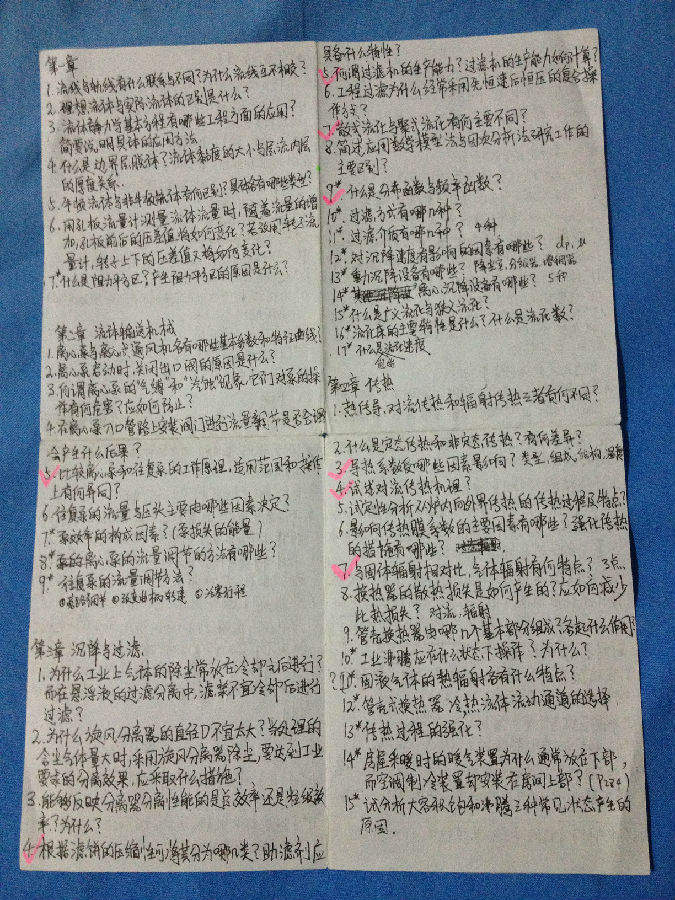 第一章
1. 流线与轨线有什么联系与不同?为什么流线互不相交?
2. 理想流体与实际流体的区别是什么?
3. 流体静力学基本方程有哪些工程方面的应用?
简要说明具体的应用方法
4. 什么是边界层脱体?流体黏度的大小与层流内层
的厚度关系.
5. 牛顿流体与非牛顿流体有何区别?具体含有哪些类型?
6. 用孔板流量计测量流体流量时,随着流量的增
加,孔板前后的压差值将如何变化?若改用转子流
量计,转子上下的压差值又将如何变化?
7.* 什么是阻力平方区?产生阻力平方区的原因是什么?
第二章 流体输送机械
1. 离心泵与离心通风机各有哪些基本参数和特征曲线?
2. 离心泵启动时,关闭出口阀的原因是什么?
3. 何谓离心泵的“气缚”和“汽蚀”现象,它们对泵的操
作有何危害?应如何防止?
4. 在离心泵入口管路上安装阀门进行流量调节是否会
会产生什么后果?
5. 比较离心泵和往复泵的工作原理,适用范围和操作
上有何异同?
6. 往复泵的流量与压头主要由哪些因素决定?
7.* 泵效率的构成因素?(泵损失的能量)
8.* 泵的离心泵的流量调节的方法有哪些?
9.* 往复泵的流量调节方法?
①旁路调节 ②改变曲柄转速 ③活塞行程
第三章 沉降与过滤
1. 为什么工业上气体的除尘常放在冷却之后进行?
而在悬浮液的过滤分离中,滤浆不宜冷却后进行
过滤?
2. 为什么旋风分离器的直径D不宜太大?当处理的
含尘气体量大时,采用旋风分离器除尘,要达到工业
要求的分离效果,应采取什么措施?
3. 能够反映分离器分离性能的是总效率还是粒级效
率?为什么?
4. 根据滤饼的压缩性可薄其分为哪几类?助滤剂应
具备什么特性?
5. 何谓过滤机的生产能力?过滤机的生产能力如何计算?
6. 工程过滤为什么经常采用先恒速后恒压的复合操
作方式?
7. 散式流化与聚式流化有何主要不同?
8. 简述应用数学模型法与因次分析法研究工作的
主要区别?
9.* 什么是分布函数与频率函数?
10.* 过滤方式有哪几种?
11.* 过滤介质有哪几种? 4种
12.* 对沉降速度有影响的因素有哪些? dp, μ
13.* 重力沉降设备有哪些? 降尘室,分级器,增稠器
14.* 离心沉降设备有哪些? 5种
15.* 什么是广义流化与狭义流化?
16.* 流化床的主要特性是什么?什么是流化数?
17.* 什么是 速度
第四章 传热
1. 热传导,对流传热和辐射传热三者有何不同?
2. 什么是定态传热和非定态传热?有何差异?
3. 导热系数受哪些因素影响? 类型,组成,结构,温度
4. 试述对流传热机理?
5. 试定性分析以炉内向外界传热的传热过程及特点?
6. 影响传热膜系数的主要因素有哪些?强化传热
的措施有哪些?
7. 与固体辐射相对比,气体辐射有何特点? 3点
8. 换热器的散热损失是如何产生的?应如何减少
此热损失? 对流,辐射
9. 管壳换热器由哪几个基本部分组成?各起什么作用?
10.* 工业沸腾应在什么状态下操作?为什么?
? 11.* 固液气体的热辐射各有什么特点?
12.* 管壳式换热器 冷热流体流动通道的选择
13.* 传热过程的强化?
14.* 房屋采暖时的暖气装置为什么通常放在下部,
而空调制冷装置却安装在房间上部?(P224)
15.* 试分析大容积饱和沸腾三种常见状态产生的
原因.